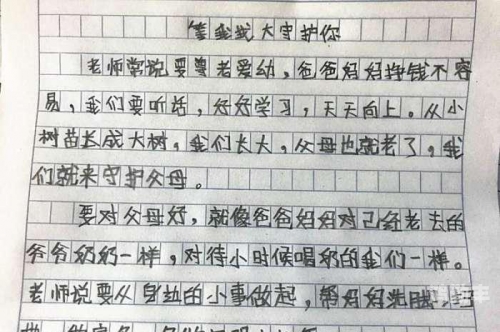 等我长大守护你
老师常说要尊老爱幼，爸爸妈妈挣钱不容
易，我们要听话，好好学习，天天向上。从小
树苗长成大树，我们长大，父母也就老了，我
们就来守护父母。
要对父母好，就像爸爸妈妈对已经老去的
爷爷奶奶一样，对待小时候喝奶的我们一样。
老师说要从身边的小事做起，帮妈妈洗脚